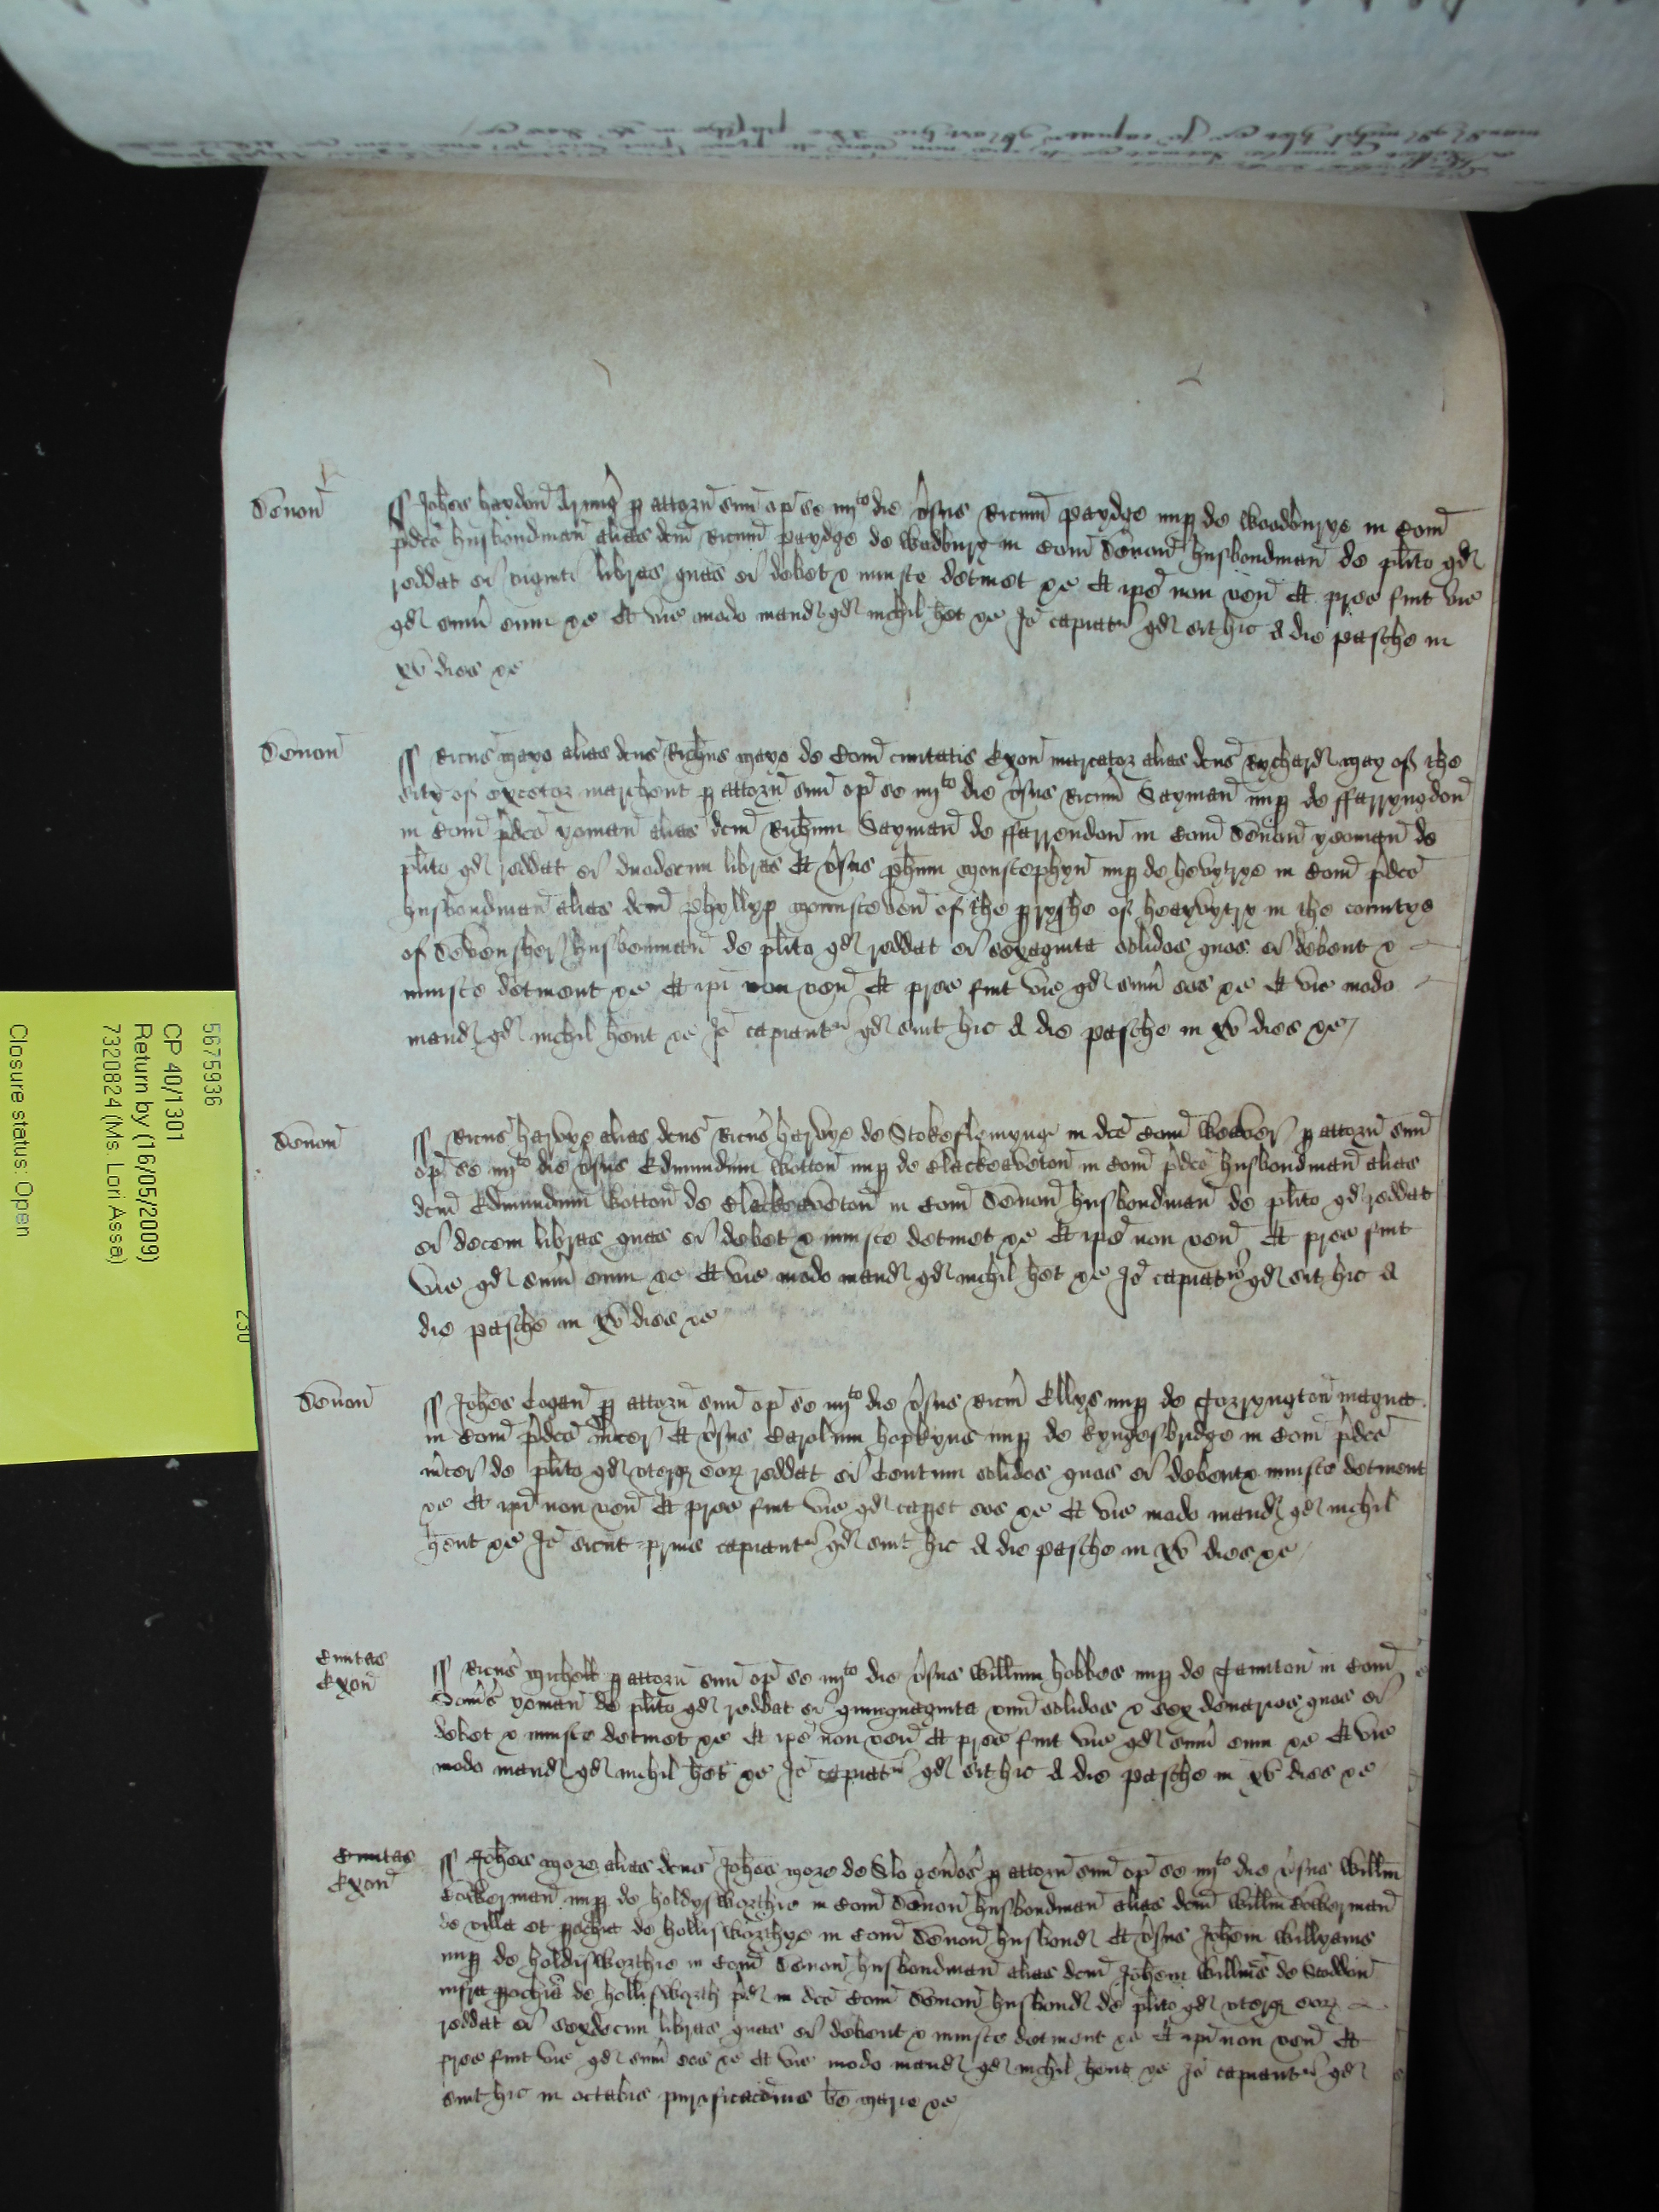 Devon̄
ss Joh̄es haydon̄ Armig̕ p attorn̄ suū op̄ se iiijto die v̄sus Ricum̄ paydge nup de Woodburye in Com̄
p̄dc̄o husbondman̄ alias dcm̄ Ricum̄ paydge de Wodbury in Com̄ Devon̄ husbondman̄ de pl̄ito qd
reddat ei viginti libras quas ei debet & iniuste detinet &c Et ip̄e non ven̄ Et prec̄ fuit vic̄
qd sum̄ eum &c Et vic̄ modo mand qd nichil h̄et &c Jō capiat̄ qd sit hic A die pasche in
xv dies &c
Devon̄
ss Ricus̄ Mayo alias dcus̄ Rich̄us Mayo de Com̄ Civitatis Exon̄ marcator alias dcus̄ Rychard May of the
Citye of excetor marchent p attorn̄ suū op̄ se iiijto die v̄sus Ricum̄ Sayman̄ nup de ffarryngdon̄
in Com̄ p̄dc̄o yoman̄ alias dcm̄ Rich̄um Sayman̄ de ffarrendon̄ in Com̄ Devon̄ yeoman̄ de
pl̄ito qd reddat ei duodecim libras Et v̄sus ph̄um Monstephyn̄ nup de hevytrye in Com̄ p̄dc̄o
husbondman̄ alias dcm̄ phyllyp Mounsteven̄ of the pryshe of heavytry in the countye
of Devensher husbonman̄ de pl̄ito qd reddat ei sexaginta solidos quos ei debent &
iniuste detinent &c Et ip̄i non ven̄ Et prec̄ fuit vic̄ qd sum̄ eos &c Et vic̄ modo
mand qd nichil h̄ent &c Jō capiant̄ qd sint hic A die pasche in xv dies &c
Devon̄
ss Ricus̄ harvye alias dcus̄ Ricus̄ harvye de Stokeflemynge in dc̄o Com̄ Weaver p attorn̄ suū
op̄ se iiijto die v̄sus Edmundum Wotton̄ nup de Clackeaveton̄ in Com̄ p̄dc̄o husbondman̄ alias
dcm̄ Edmundum Wotton̄ de Clackeaveton̄ in Com̄ Devon̄ husbondman̄ de pl̄ito qd reddat
ei decem libras quas ei debet & iniuste detinet &c Et ip̄e non ven̄ Et prec̄ fuit
vic̄ qd sum̄ eum &c Et vic̄ modo mand qd nichil h̄et &c Jō capiat̄ qd sit hic A
die pasche in xv dies &c
Devon̄
ss Joh̄es Cogan̄ p attorn̄ suū op̄ se iiijto die v̄sus Ricum̄ Ellys nup de Torryngton̄ magna
in Com̄ p̄dc̄o m̄cer Et v̄sus Carolum hopkyns nup de kyngesbridge in Com̄ p̄dc̄o
m̄cer de pl̄ito qd uterq eor reddat ei Centum solidos quos ei debent & iniuste detinent
&c Et ip̄i non ven̄ Et prec̄ fuit vic̄ qd capet eos &c Et vic̄ modo mand qd nichil
h̄ent &c Jō sicut prius capiant̄ qd sint hic A die pasche in xv dies &c
Civitas
Exon̄
ss Ricus̄ Michell p attorn̄ suū op̄ se iiijto die v̄sus Will̄um hobbes nup de Taunton in Com̄
Som̄s yoman̄ de pl̄ito qd reddat ei quinquaginta unū solidos & sex denarios quos ei
debet & iniuste detinet &c Et ip̄e non ven̄ Et prec̄ fuit vic̄ qd sum̄ eum &c Et vic̄
modo mand qd nichil h̄et &c Jō capiat̄ qd sit hic A die pasche in xv dies &c
Civitas
Exon̄
ss Joh̄es More alias dcus̄ Joh̄es More de Slo gen̄os̄ p attorn̄ suū op̄ se iiijto die v̄sus Will̄m
Cowerman̄ nup de holdysworthie in Com̄ Devon̄ husbondman̄ alias dcm̄ Will̄m Cowerman̄
de villa et pochia de hollisworthye in Com̄ Devon̄ husbond Et v̄sus Joh̄em Willyams
nup de holdisworthie in Com̄ Devon̄ husbondman̄ alias dcm̄ Joh̄em Will̄ms de Stoddon̄
infra pochiā de hollisworth p̄d in dc̄o Com̄ Devon̄ husbond de pl̄ito qd uterq eor
reddat ei sexdecim libras quas ei debent & iniuste detinent &c Et ip̄i non ven̄ Et
prec̄ fuit vic̄ qd sum̄ eos &c Et vic̄ modo mand qd nichil h̄ent &c Jō capiant̄ qd
sint hic in octabis purificac̄ōnis bē Marie &c
5675936
CP 40/1301
Return by (16/05/2009)
7320824 (Ms. Lori Assa)
Closure status: Open
230